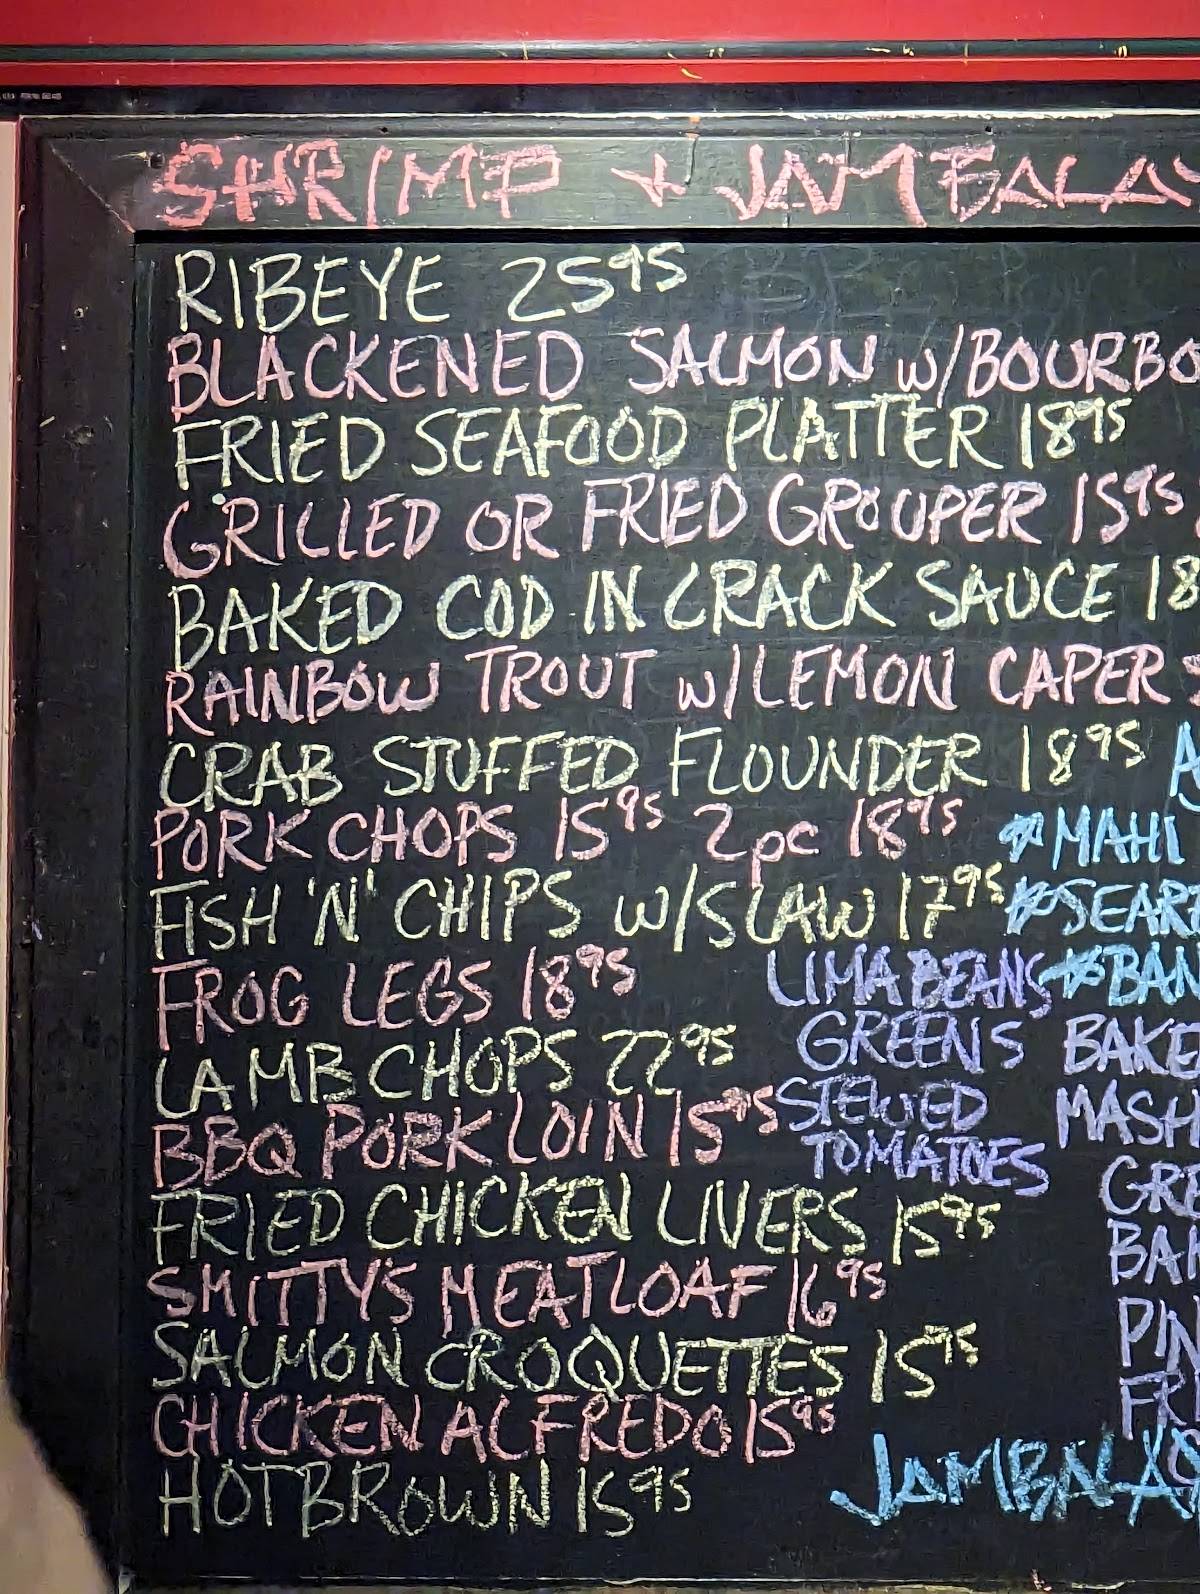 SHRIMP + JAMBALAY
RIBEYE 25 95
BLACKENED SALMON w/BOURBO
FRIED SEAFOOD PLATTER 18 95
GRILLED OR FRIED GROUPER 15 95
BAKED COD IN CRACK SAUCE 18
RAINBOW TROUT w/LEMON CAPER
CRAB STUFFED FLOUNDER 18 95
PORK CHOPS 15 95 2pc 18 95
FISH 'N' CHIPS w/SLAW 17 95
FROG LEGS 18 95
LAMB CHOPS 22 95
BBQ PORK LOIN 15 95
FRIED CHICKEN LIVERS 15 95
SMITTY'S MEATLOAF 16 95
SALMON CROQUETTES 15 95
CHICKEN ALFREDO 15 95
HOT BROWN 15 95
LIMA BEANS
GREENS
STEWED
TOMATOES
MAHI
SEAR
BAN
BAKE
MASH
GRE
BAK
PIN
FRI
JAMBALAY